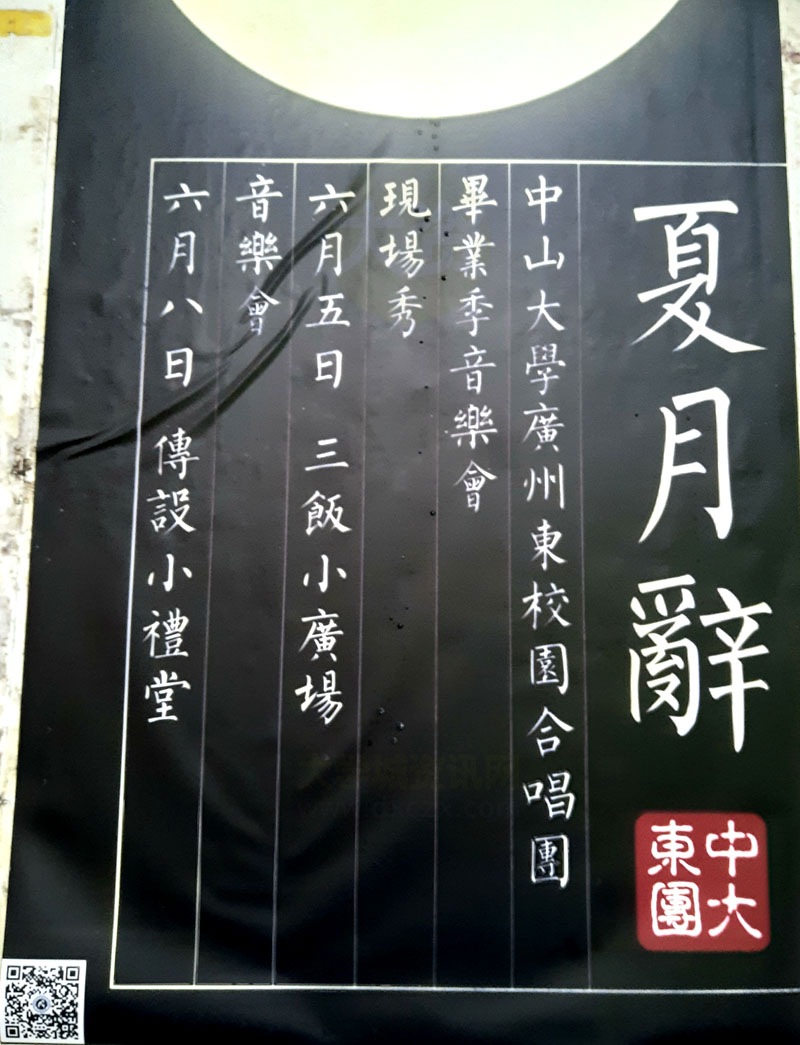 夏月辭
中大
東團
中山大學廣州東校園合唱團
畢業季音樂會
現場秀
六月五日 三飯小廣場
音樂會
六月八日 傳設小禮堂